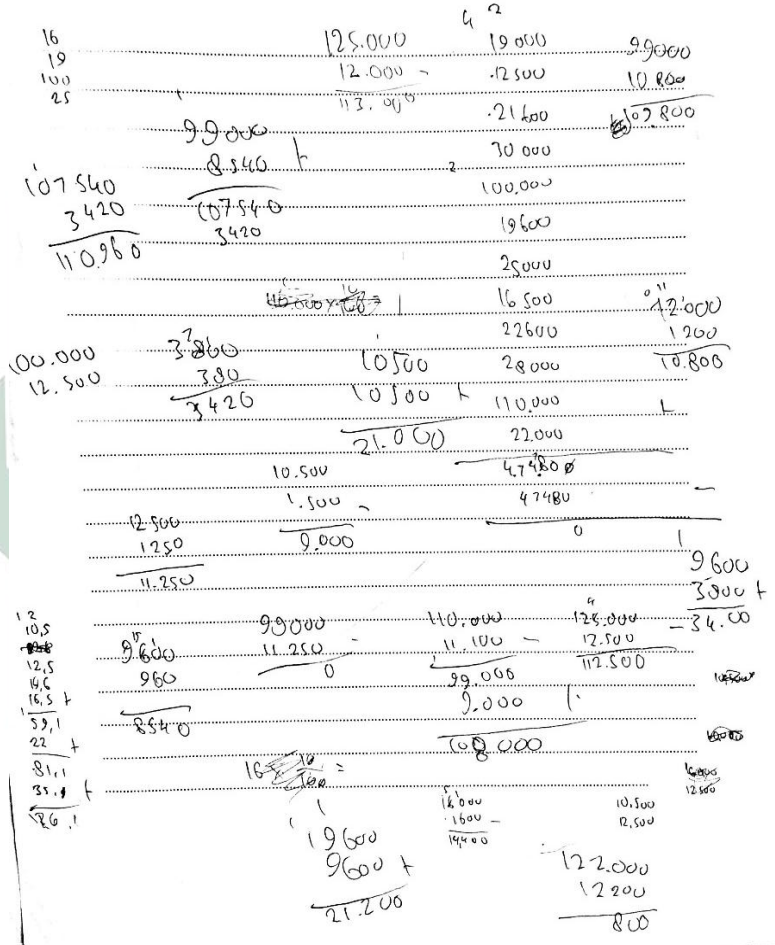 4 2
16
19
100
25
125.000
12.000 -
113.000
19000
12500
21600
30000
2
100.000
19600
25000
16500
22600
28000
110.000
22.000
474800
47480 -
0
99000
10800
109.800
99000
8540 +
107540
3420
107540
3420
110.960
12.000
1200
10.800
100.000
12.500
3860
380
3420
10500
10500 +
21.000
10.500
1.500 -
9.000
12.500
1250
11.250
9600
3800 +
34.00
1 2
10,5
12,5
16,5 +
59,1
22 +
81,1
9600
960
8540
99000
11.250 -
0
110.000
11.100 -
99.000
9.000
125.000
12.500 -
112.500
16
19600
9600 +
21.200
16000
1600 -
14,400
10,500
12,500
12.500
122.000
12200
800